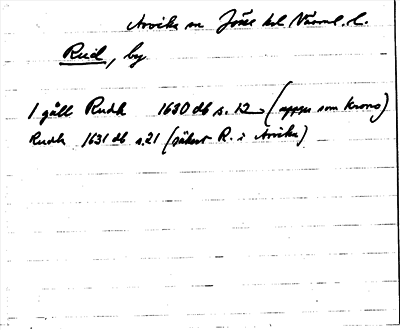 Arvika sn Jösse hd Värml. l.
Rud, by
1 gåll Rudh 1630 db s. 12 (uppges som krono)
Rudh 1631 db s. 21 (säkert R. i Arvika)